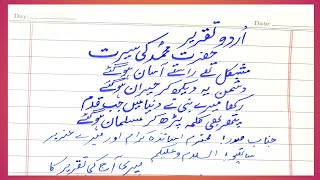 Day:
Date:
اُردو تقریر
حضرت محمدؐ کی سیرت
مشکل تھے راستے آسان ہو گئے
دشمن یہ دیکھ کر حیران ہو گئے
رکھا میرے نبی نے دنیا میں جب قدم
پتھر بھی کلمہ پڑھ کر مسلمان ہو گئے
جناب صدر! محترم اساتذہ کرام اور میرے عزیز
ساتھیو! السلام وعلیکم
میری آج کی تقریر کا